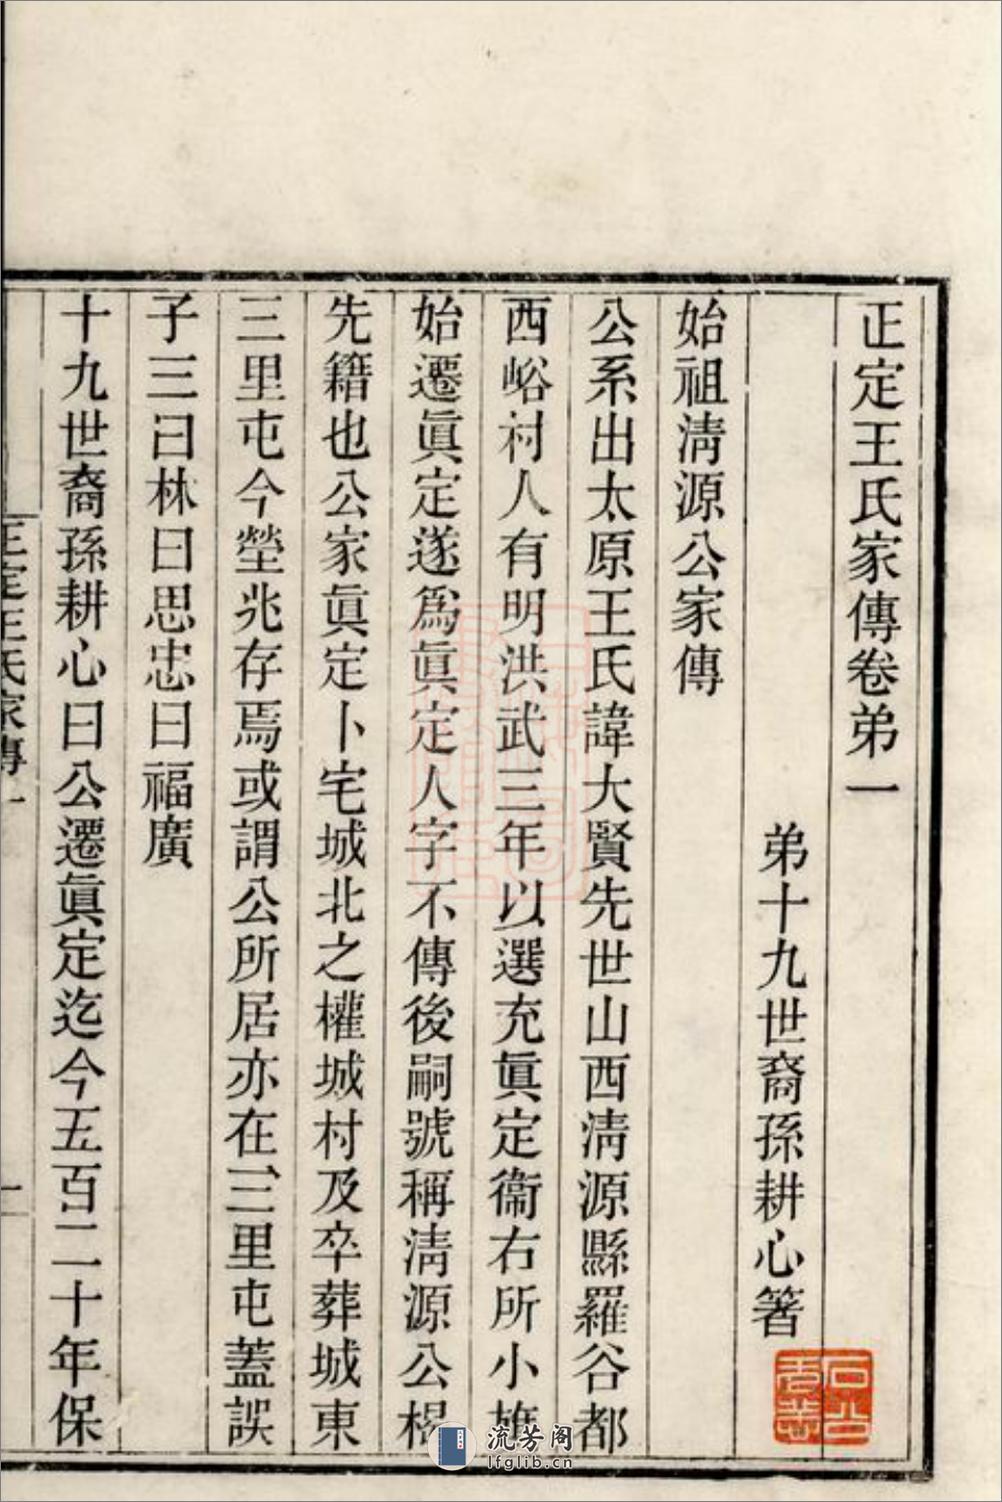 正定王氏家傳卷弟一
弟十九世裔孫耕心箸
始祖淸源公家傳
公系出太原王氏諱大賢先世山西淸源縣羅谷都
西峪村人有明洪武三年以選充眞定衞右所小旗
始遷眞定遂爲眞定人字不傳後嗣號稱淸源公楬
先籍也公家眞定卜宅城北之權城村及卒葬城東
三里屯今塋兆存焉或謂公所居亦在三里屯蓋誤
子三曰林曰思忠曰福廣
十九世裔孫耕心曰公遷眞定迄今五百二十年保
正定王氏家傳一
一
流芳阁
lfglib.cn